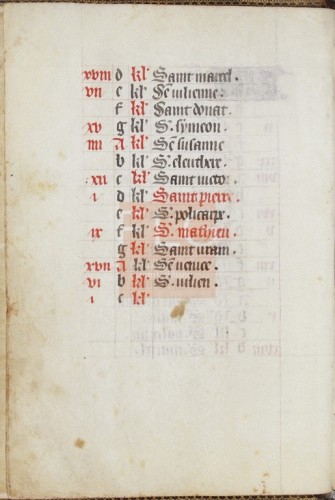 xviii d kl' Saint marcel.
vii e kl' Ste iulienne.
f kl' Saint donat.
xv g kl' S. symeon.
iiii A kl' Ste susanne
b kl' S. eleuthere.
xii c kl' Saint victor.
i d kl' Saint pierre.
e kl' S. policarpe.
ix f kl' S. mathieu.
g kl' Saint
xvii A kl' Ste
vi b kl' S. iulien.
i c kl'